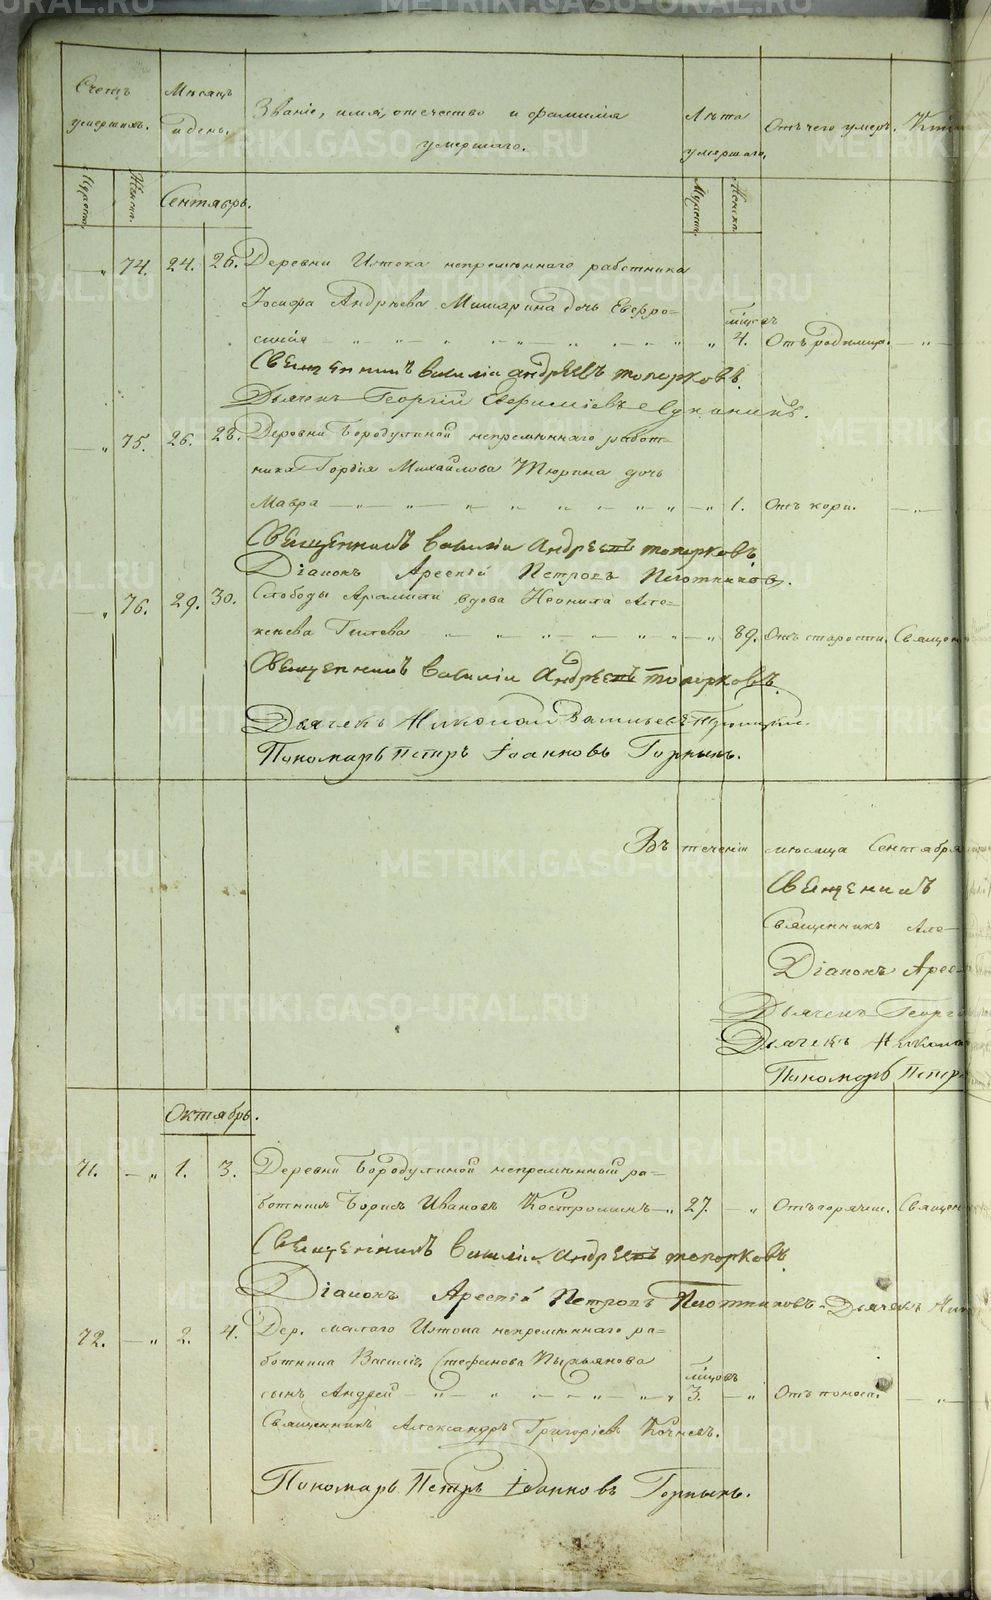 Счетъ умершихъ.
Мѣсяцъ и день.
Званіе, имя, отечество и фамилія умершаго.
Лѣта умершаго.
Отъ чего умеръ.
Мужска.
Женска.
Сентябрь.
Мужска.
Женска.
74. 24. 26. Деревни Истока непремѣннаго работника
Іосифа Андрѣева Мишарина дочь Евфро-
синія мѣсяцъ 4. Отъ родимца.
Священникъ Василій Андреевъ Топорковъ.
Дьячекъ Георгій Евфиміевъ
75. 26. 28. Деревни Бородулиной непремѣннаго работ-
ника Гордія Михайлова Тюрина дочь
Мавра 1. Отъ кори.
Священникъ Василій Андреевъ Топорковъ.
Діаконъ Арсеній Петровъ Плотниковъ.
76. 29. 30. Слободы Арамили вдова Неонила Але-
89. Отъ старости. Священ
Священникъ Василій Андреевъ Топорковъ.
Дьячекъ Николай Васильевъ
Пономарь Петръ Іоанновъ Горныхъ.
Въ теченіи мѣсяца Сентября
Священникъ
Священникъ Але-
Діаконъ Арсе-
Дьячекъ Георгі
Дьячекъ Никола
Пономарь Петръ
Октябрь.
71. 1. 3. Деревни Бородулиной непремѣнный ра-
ботникъ Борисъ Ивановъ Костроминъ 27. Отъ горячки. Священ
Священникъ Василій Андреевъ Топорковъ.
Діаконъ Арсеній Петровъ Плотниковъ. Дьячекъ Ник
72. 2. 4. Дер. малаго Истока непремѣннаго ра-
ботника Василія Стефанова
сынъ Андрей мѣсяцовъ 3. Отъ поноса.
Священникъ Александръ Григоріевъ Кочневъ.
Пономарь Петръ Іоанновъ Горныхъ.
METRIKI.GASO-URAL.RU